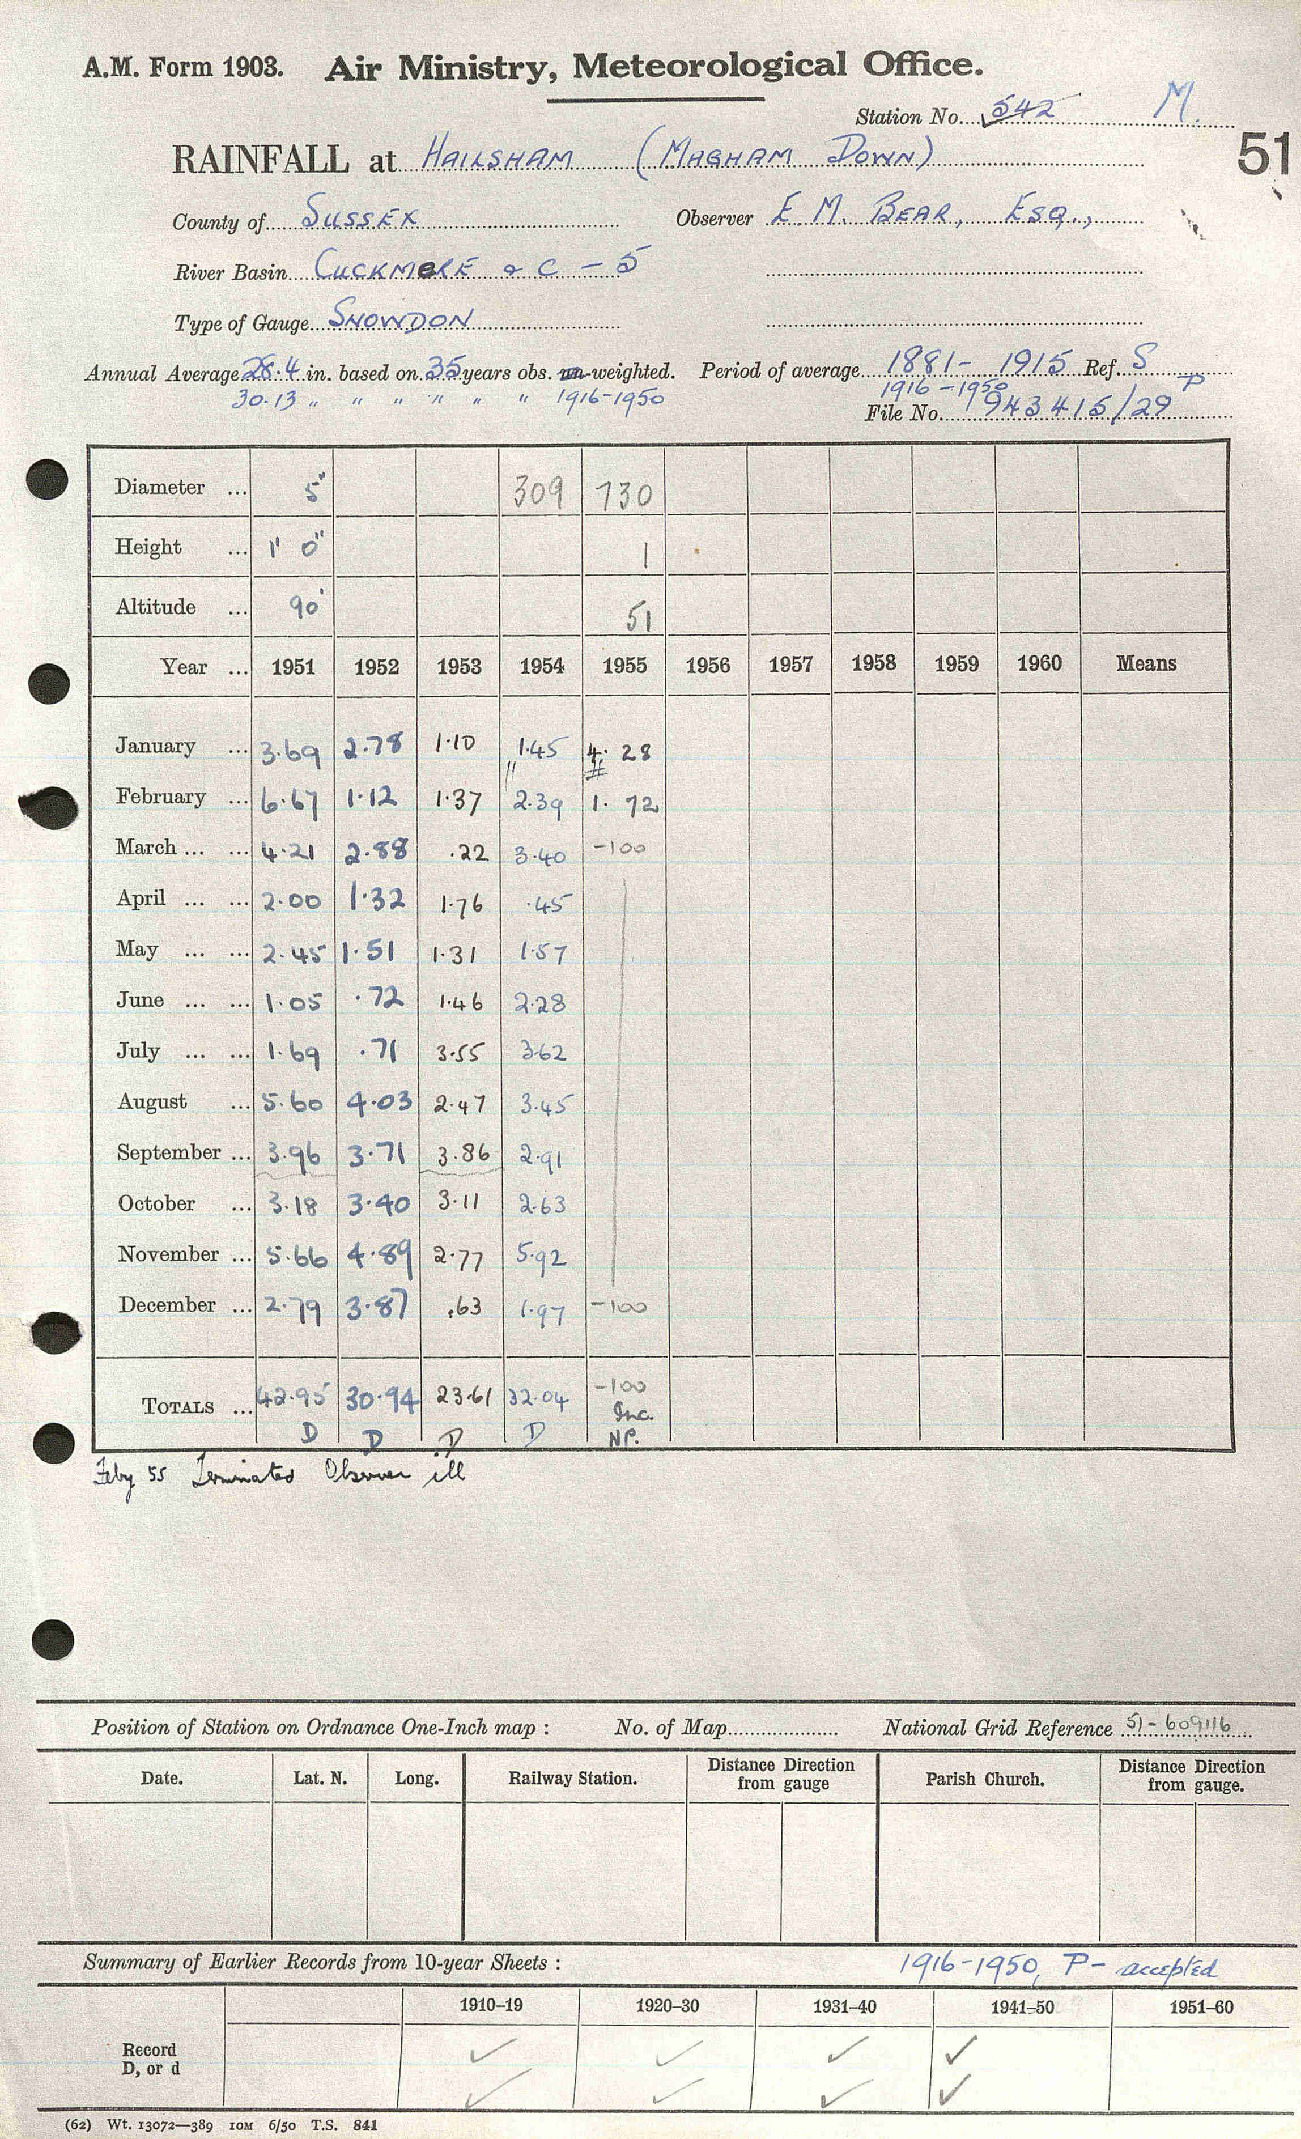 A.M. Form 1903. Air Ministry, Meteorological Office.
Station No. 542 M.
RAINFALL at HAILSHAM (MAGHAM DOWN) 51
County of SUSSEX Observer E M. BEAR, ESQ.,
River Basin CUCKMERE & C - 5
Type of Gauge SNOWDON
Annual Average 28.4 in. based on 35 years obs. un-weighted. Period of average 1881- 1915 Ref. S
30.13 " " " " " " 1916-1950 1916-1950 P
File No. 943415/29
Diameter ... 5" 309 730
Height ... 1' 0" 1
Altitude ... 90' 51
Year ... 1951 1952 1953 1954 1955 1956 1957 1958 1959 1960 Means
January ... 3.69 2.78 1.10 1.45 4. 28
February ... 6.67 1.12 1.37 2.39 1. 72
March ... ... 4.21 2.88 .22 3.40 -100
April ... ... 2.00 1.32 1.76 .45
May ... ... 2.45 1.51 1.31 1.57
June ... ... 1.05 .72 1.46 2.28
July ... ... 1.69 .71 3.55 3.62
August ... 5.60 4.03 2.47 3.45
September ... 3.96 3.71 3.86 2.91
October ... 3.18 3.40 3.11 2.63
November ... 5.66 4.89 2.77 5.92
December ... 2.79 3.87 .63 1.97 -100
TOTALS ... 42.95 30.94 23.61 32.04 -100
Inc.
D D D D NP.
Feby 55 Terminated Observer ill
Position of Station on Ordnance One-Inch map : No. of Map National Grid Reference 51-609116
Date. Lat. N. Long. Railway Station. Distance Direction from gauge Parish Church. Distance Direction from gauge.
Summary of Earlier Records from 10-year Sheets : 1916-1950, P- accepted
1910-19 1920-30 1931-40 1941-50 1951-60
Record
D, or d
(62) Wt. 13072—389 10M 6/50 T.S. 841